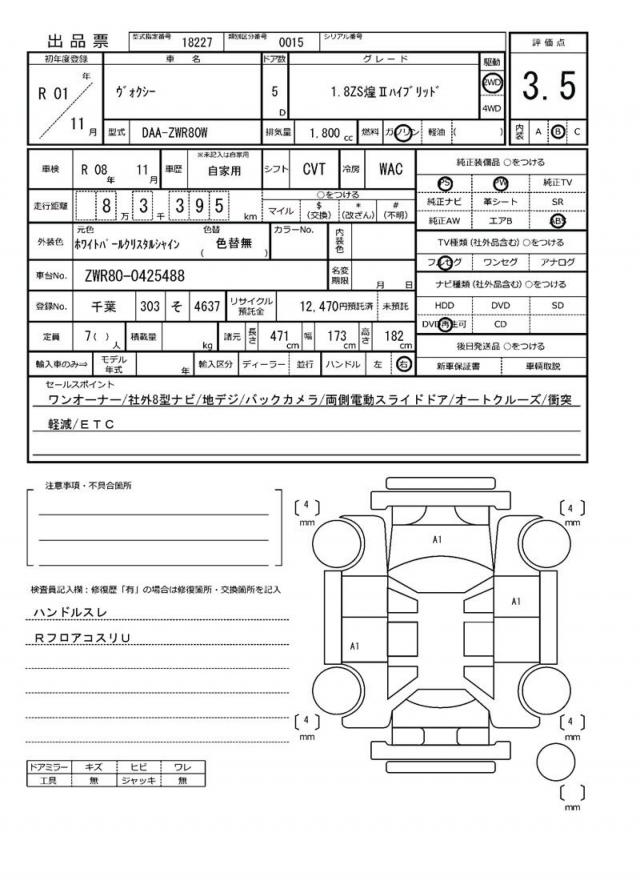 出品票 型式指定番号 18227 類別区分番号 0015 シリアル番号
初年度登録 車名 ドア数 グレード 駆動 評価点
R 01 年 11 月 ヴォクシー 5 D 1.8ZS煌Ⅱハイブリッド 2WD 4WD 3.5
型式 DAA-ZWR80W 排気量 1.800 cc 燃料 ガソリン 軽油 ( ) 内装 A B C
車検 R 08 年 11 月 車歴 ※未記入は自家用 自家用 シフト CVT 冷房 WAC
走行距離 8 万 3 千 3 9 5 km ○をつける マイル $ (交換) * (改ざん) # (不明)
外装色 元色 ホワイトパールクリスタルシャイン 色替 ( 色替無 ) カラーNo. 内装色
車台No. ZWR80-0425488 名変期限 月 日
登録No. 千葉 303 そ 4637 リサイクル預託金 12,470円預託済 未預託
定員 7( ) 人 積載量 kg 諸元 長さ 471 cm 幅 173 cm 高さ 182 cm
輸入車のみ⇒ モデル年式 年 輸入区分 ディーラー 並行 ハンドル 左 右
純正装備品 ○をつける
PS PW 純正TV
純正ナビ 革シート SR
純正AW エアB ABS
TV種類(社外品含む) ○をつける
フルセグ ワンセグ アナログ
ナビ種類(社外品含む) ○をつける
HDD DVD SD
DVD再生可 CD
後日発送品 ○をつける
新車保証書 車輌取説
セールスポイント
ワンオーナー/社外8型ナビ/地デジ/バックカメラ/両側電動スライドドア/オートクルーズ/衝突
軽減/ETC
注意事項・不具合箇所
検査員記入欄：修復歴「有」の場合は修復箇所・交換箇所を記入
ハンドルスレ
RフロアコスリU
ドアミラー キズ ヒビ ワレ
工具 無 ジャッキ 無
4 mm
4 mm
A1
A1
A1
4 mm
4 mm
mm